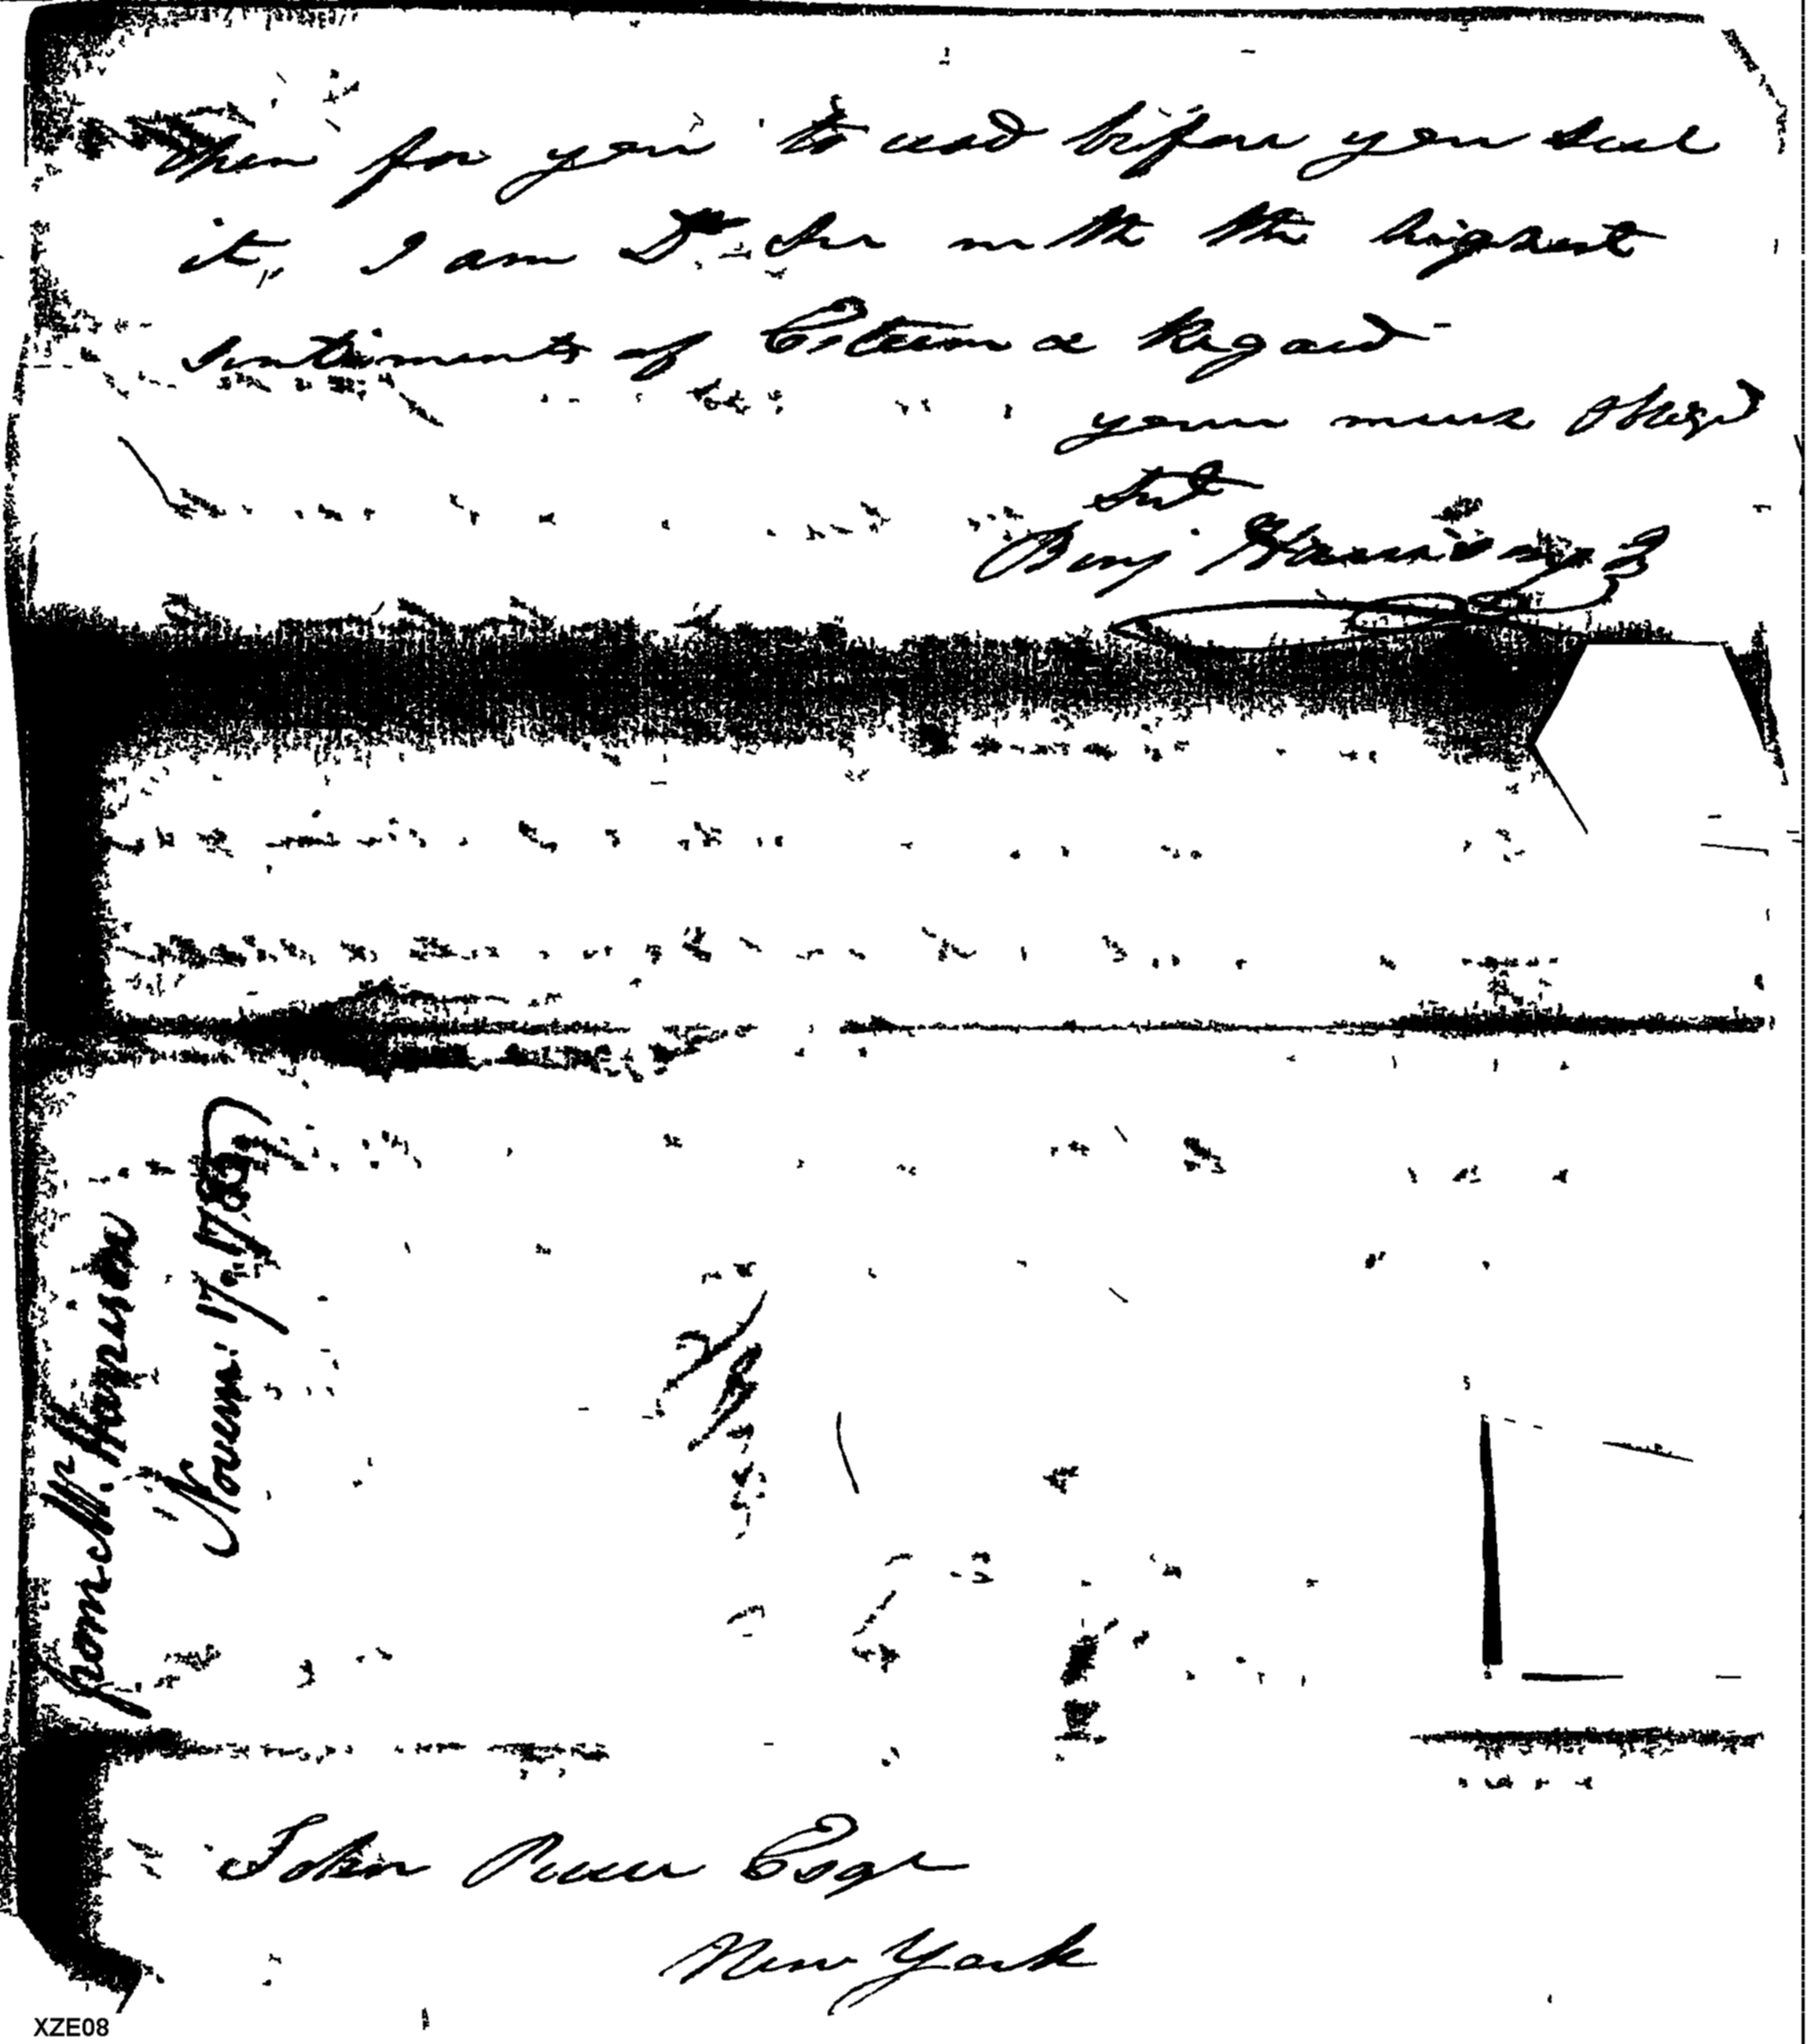 open for you to read before you seal
it, I am Dr Sir with the highest
Sentiments of Esteem & Regard
your much Obligd
Sert
Benj Harrison
from Mr. Harrison
Novem: 17. 1789
John Esqr
New York
XZE08